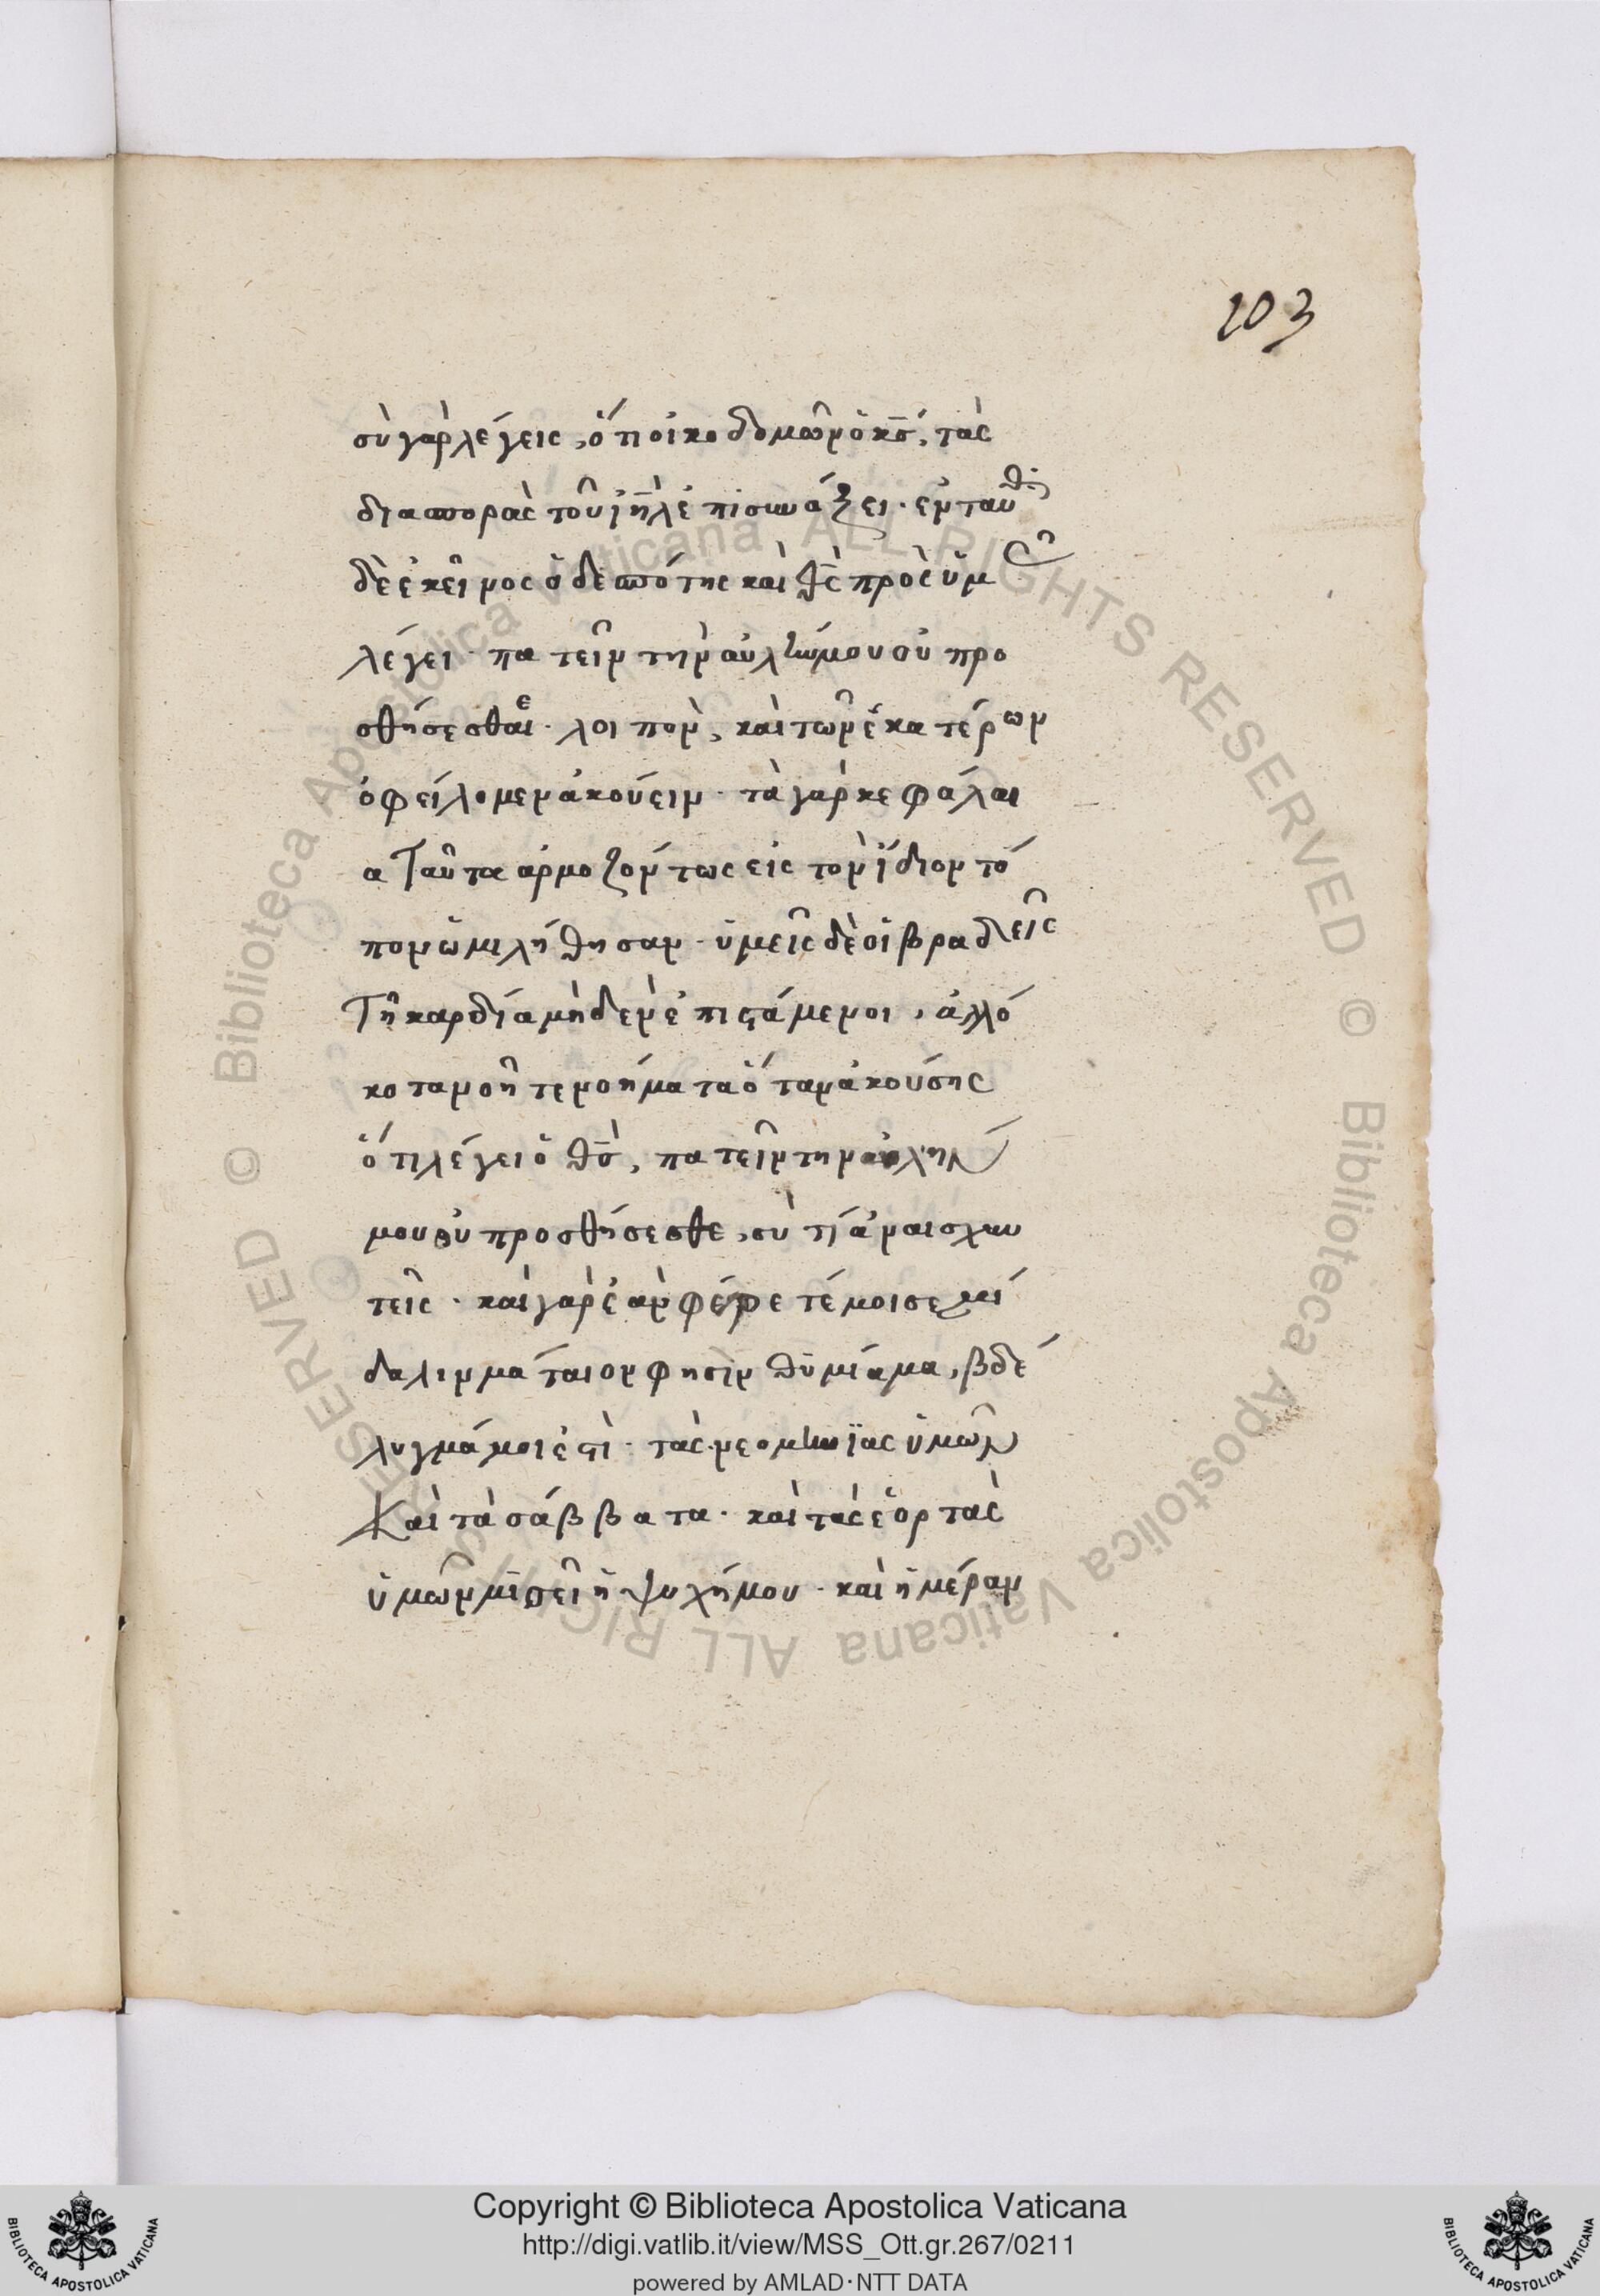 103
σὺ γὰρ λέγεις, ὅτι οἰκοδομῶν ὁ κς̅, τὰς
διασπορὰς τοῦ ιη̅λ ἐπισυνάξει· ἐνταῦθ
δὲ ἐκεῖνος ὁ δεσπότης καὶ θς̅ πρὸς ὑμᾶς
λέγει· πατεῖν τὴν αὐλήν μου οὐ προ
σθήσεσθαι· λοιπὸν, καὶ τῶν ἑκατέρων
ὀφείλομεν ἀκούειν· τὰ γὰρ κεφάλαι
α ταῦτα ἁρμοζόντως εἰς τὸν ἴδιον τό
πον ὡμιλήθησαν· ὑμεῖς δὲ οἱ βραδεῖς
τῆ καρδία μηδὲν ἐπιστάμενοι, ἀλλό
κοτα νοῆτε νοήματα ὅταν ἀκούσης
ὅτι λέγει ὁ θς̅, πατεῖν τὴν αὐλήν
μου οὐ προσθήσεσθε, σὺ τί ἀναισχυν
τεῖς· καὶ γὰρ ἐὰν φέρετέ μοι σεμί
δαλιν μάταιον φησὶν θυμίαμα, βδέ
λυγμά μοι ἐστὶ· τὰς νεομηνίας ὑμῶν
Καὶ τὰ σάββατα· καὶ τὰς ἑορτὰς
ὑμῶν μισεῖ ἡ ψυχή μου· καὶ ἡμέραν
Copyright © Biblioteca Apostolica Vaticana
http://digi.vatlib.it/view/MSS_Ott.gr.267/0211
powered by AMLAD·NTT DATA
BIBLIOTECA APOSTOLICA VATICANA
BIBLIOTECA APOSTOLICA VATICANA
© Biblioteca Apostolica Vaticana ALL RIGHTS RESERVED
© Biblioteca Apostolica Vaticana ALL RIGHTS RESERVED